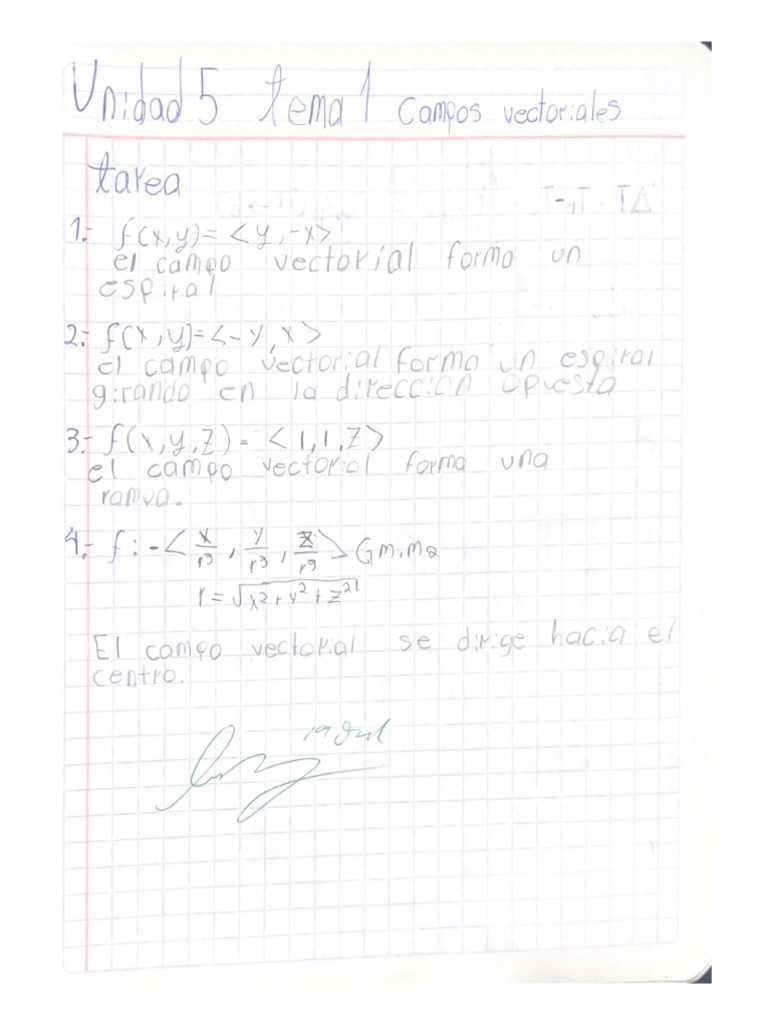 Unidad 5 tema 1 Campos vectoriales
tarea
1.- f(x,y)= <y,-x>
el campo vectorial forma un
espiral
2.- f(x,y)=<-y,x>
el campo vectorial forma un espiral
girando en la dirección opuesta
3.- f(x,y,z)= <1,1,z>
el campo vectorial forma una
rampa.
4.- f: -<x/r³, y/r³, z/r³> Gm₁m₂
r=√x²+y²+z²
El campo vectorial se dirige hacia el
centro.
19 Jul